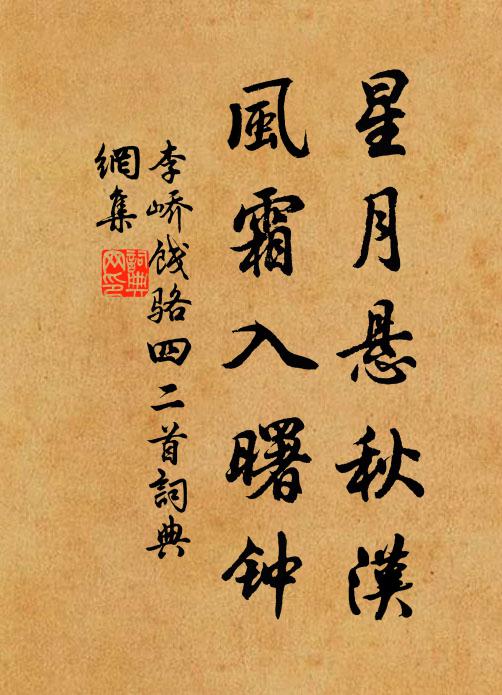 星月悬秋漢
風霜入曙钟
李峤餞骆四二首詞典
網集
詞典
网印